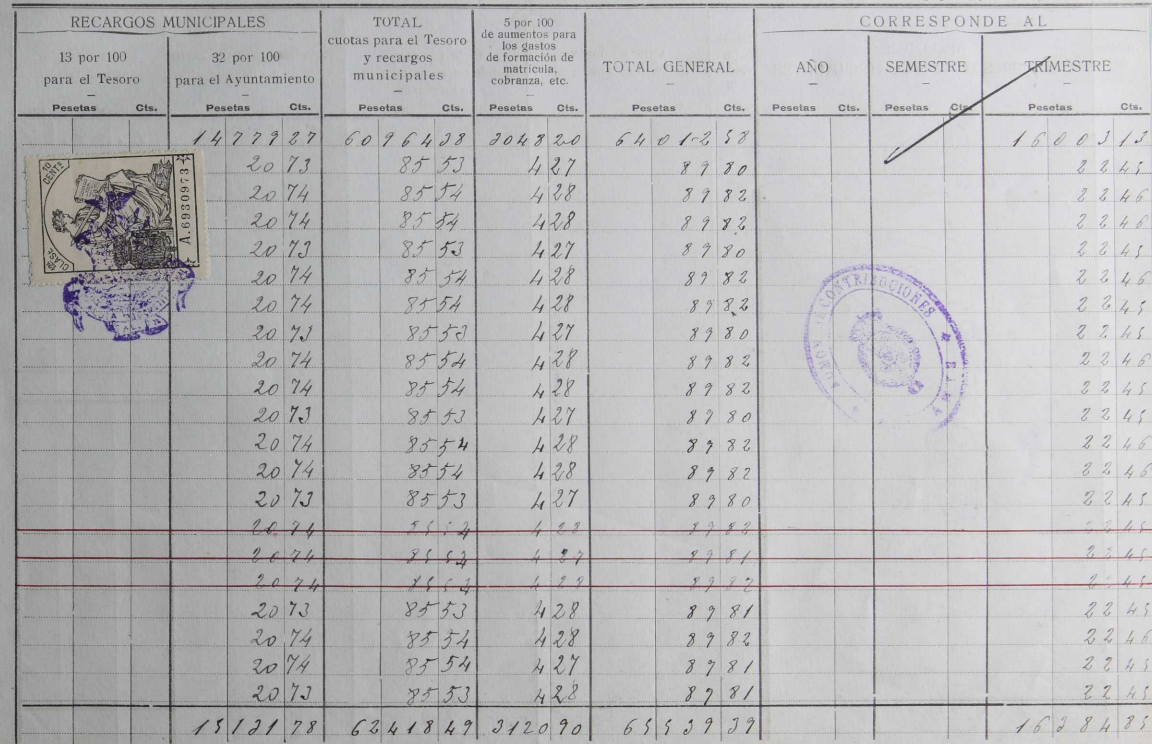 RECARGOS MUNICIPALES
13 por 100
para el Tesoro
Pesetas Cts.
32 por 100
para el Ayuntamiento
Pesetas Cts.
TOTAL
cuotas para el Tesoro
y recargos
municipales
Pesetas Cts.
5 por 100
de aumentos para
los gastos
de formación de
matrícula,
cobranza, etc.
Pesetas Cts.
TOTAL GENERAL
Pesetas Cts.
CORRESPONDE AL
AÑO
Pesetas Cts.
SEMESTRE
Pesetas Cts.
TRIMESTRE
Pesetas Cts.
14779 27 60964 38 3048 20 64012 58 16003 13
20 73 85 53 4 27 89 80 22 45
20 74 85 54 4 28 89 82 22 46
20 74 85 54 4 28 89 82 22 46
20 73 85 53 4 27 89 80 22 45
20 74 85 54 4 28 89 82 22 46
20 74 85 54 4 28 89 82 22 45
20 73 85 53 4 27 89 80 22 45
20 74 85 54 4 28 89 82 22 46
20 74 85 54 4 28 89 82 22 45
20 73 85 53 4 27 89 80 22 45
20 74 85 54 4 28 89 82 22 46
20 74 85 54 4 28 89 82 22 46
20 73 85 53 4 27 89 80 22 45
20 74 4 28 89 82 22 45
20 74 4 27 89 81 22 45
20 74 4 28 89 82 22 45
20 73 85 53 4 28 89 81 22 45
20 74 85 54 4 28 89 82 22 46
20 74 85 54 4 27 89 81 22 45
20 73 85 53 4 28 89 81 22 45
15131 78 62418 49 3120 90 65539 39 16384 85
10 CENTS
A.6930973
CLASE
CONTRIBUCIONES